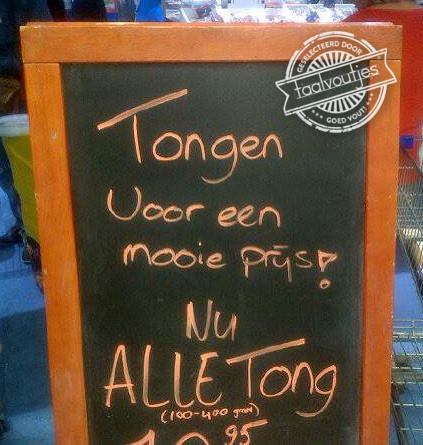 GESELECTEERD DOOR
taalvoutjes
GOED VOUT!
Tongen
Voor een
mooie prijs!
NU
ALLE Tong
(100-400 gram)
95